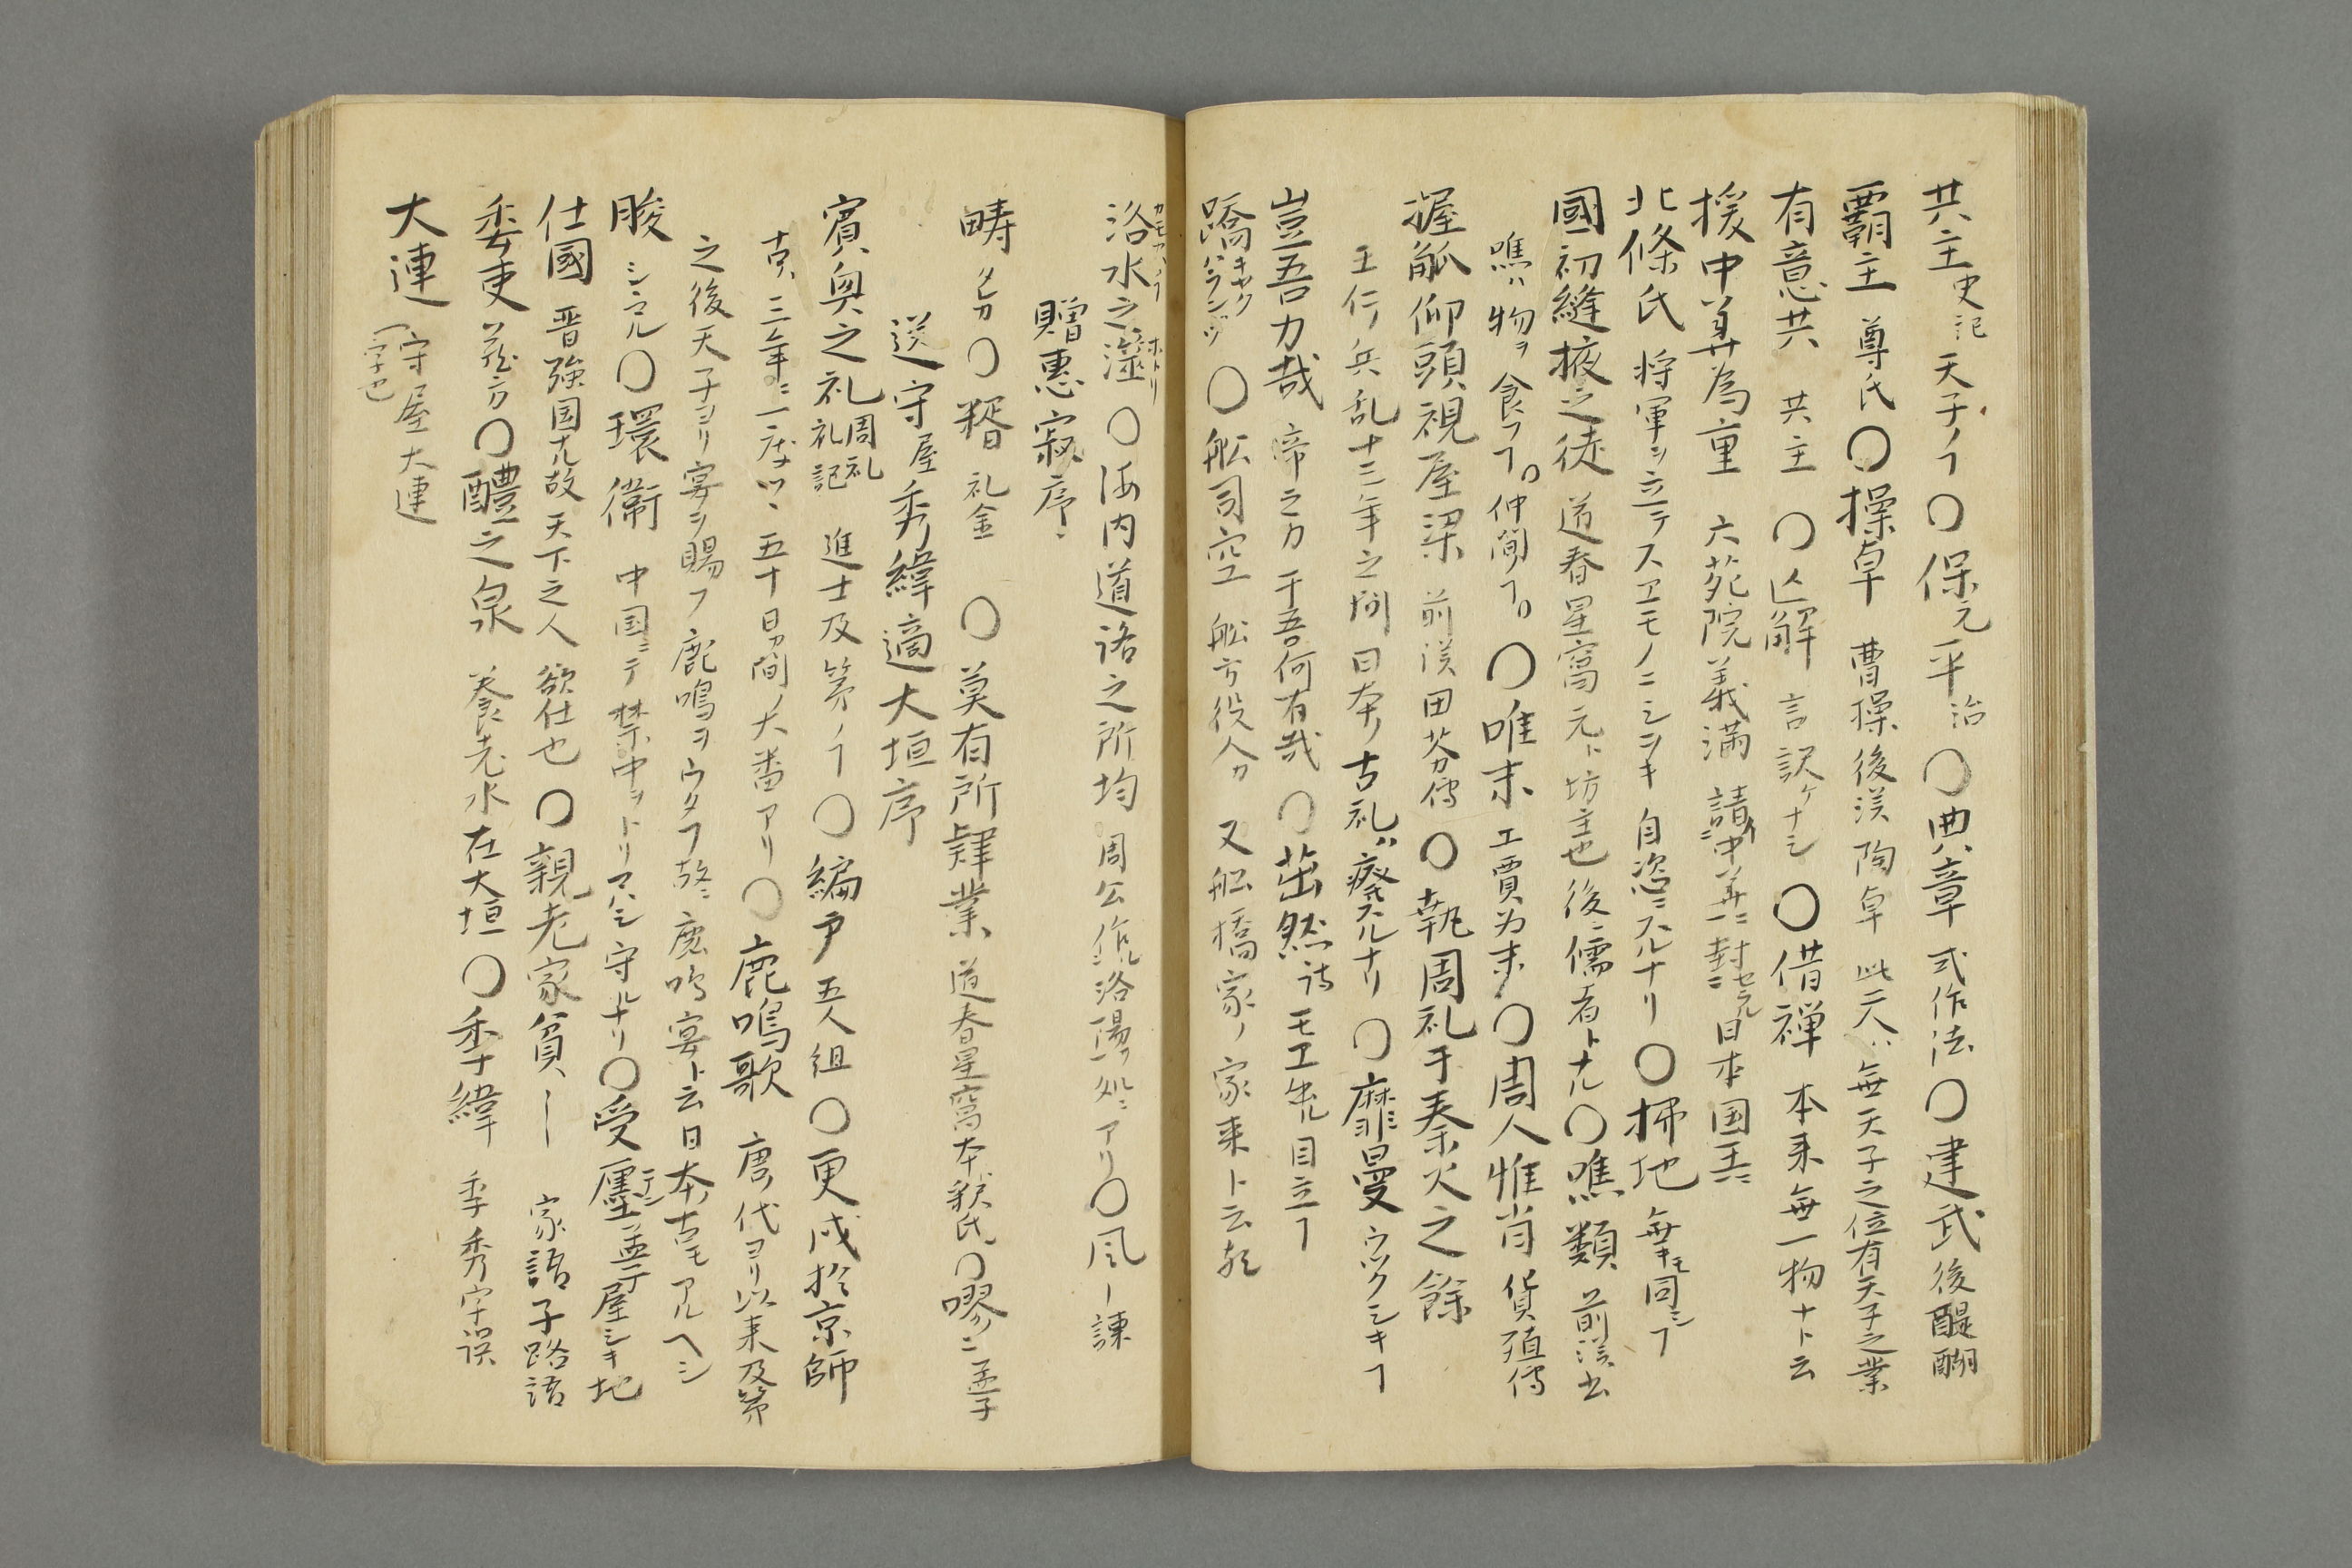 共主 史記 天子ノヿ 〇保元平治 〇典章 式作法 〇建武 後醍醐
覇主 尊氏 〇操卓 曹操後漢陶卓 此二人ハ無天子之位有天子之業
有意共 共主 〇解 言訳ケナシ 〇借禅 本来無一物ナト云
援中華為重 六苑院義満 請中華ニ封セラル日本国王ニ
北條氏 将軍ヲ立テスヱモノニシヲキ 自恣ニスルナリ 〇掃地 無キモ同シヿ
國初縫掖之徒 道春星窩元ト坊主也後ニ儒者トナル 〇噍類 前漢書
噍ハ物ヲ食フヿ仲間ノヿ 〇唯末 工賈為末 〇周人惟肖 貨殖傳
握觚仰頭視屋梁 前漢田芬傳 〇執周礼于秦火之餘
王仁ノ兵乱十三年之間日本ノ古礼ハ癈スルナリ 〇靡曼 ウツクシキヿ
豈吾力哉 帝之力于吾何有哉 〇茁然 詩 モヱ出ル目立ヿ
蹻 キヤクハランヅ 〇舩司空 舩方役人カ 又舩橋家ノ家来ト云
洛水之澨 カモカハノ ホトリ 〇海内道路之所均 周公作ル洛陽ヲ処ニアリ 〇風ー諫
贈惠寂序
疇 タレカ 〇糈 礼金 〇莫有所肄業 道春星窩本釈氏 〇嘐ニ孟子
送守屋秀緯適大垣序
賓與之礼 周礼礼記 進士及第ノヿ 〇編戸 五人組 〇更戍於京師
古ハ三年ニ一度ツヽ五十日ノ間ノ大番アリ 〇鹿鳴歌 唐ノ代ヨリ以来及第
之後天子ヨリ宴ヲ賜フ鹿鳴ヲウタフ故ニ鹿鳴宴ト云日本古モアルヘシ
朘 シヽマル 〇環衛 中国ニテ禁中ヲトリマハシ守ルナリ 〇受廛 テン 孟子 屋シキ地
仕國 晋強国ナル故天下之人欲仕也 〇親老家貧ー 家語子路語
委吏 蔵方 〇醴之泉 養老水在大垣 〇季緯 季秀字誤
大連 守屋大連 一字也